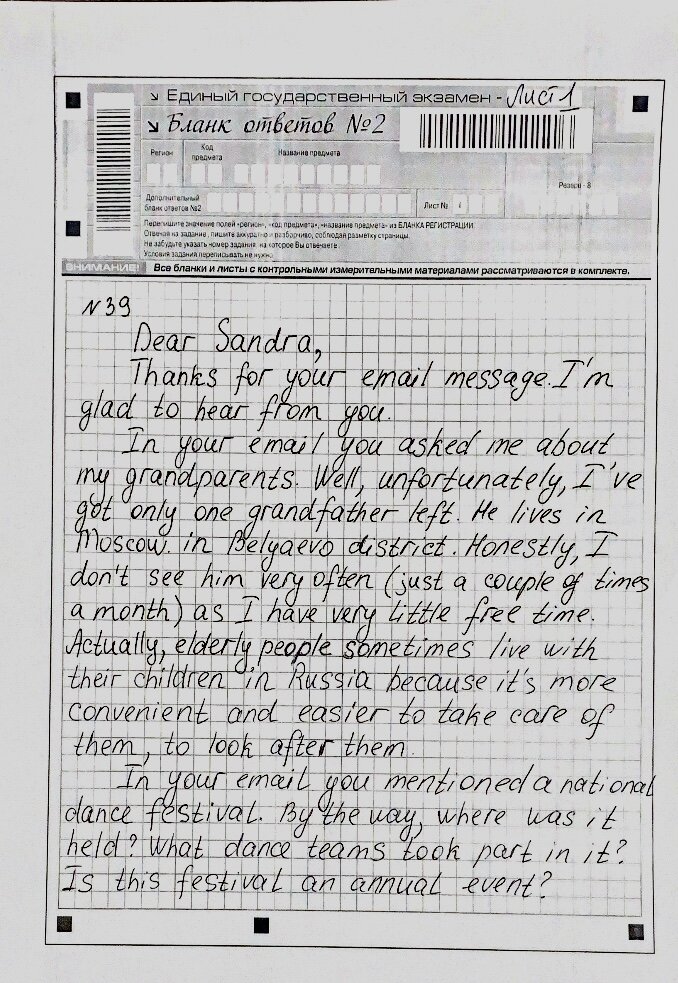 ↘ Единый государственный экзамен - Лист 1
↘ Бланк ответов №2
Регион
Код предмета
Название предмета
Резерв - 8
Дополнительный бланк ответов №2
Лист №
Перепишите значение полей «регион», «код предмета», «название предмета» из БЛАНКА РЕГИСТРАЦИИ.
Отвечая на задание, пишите аккуратно и разборчиво, соблюдая разметку страницы.
Не забудьте указать номер задания, на которое Вы отвечаете.
Условия задания переписывать не нужно.
ВНИМАНИЕ! Все бланки и листы с контрольными измерительными материалами рассматриваются в комплекте.
N39
Dear Sandra,
Thanks for your email message. I'm
glad to hear from you.
In your email you asked me about
my grandparents. Well, unfortunately, I've
got only one grandfather left. He lives in
Moscow, in Belyaevo district. Honestly, I
don't see him very often (just a couple of times
a month) as I have very little free time.
Actually, elderly people sometimes live with
their children in Russia because it's more
convenient and easier to take care of
them, to look after them.
In your email you mentioned a national
dance festival. By the way, where was it
held? What dance teams took part in it?
Is this festival an annual event?